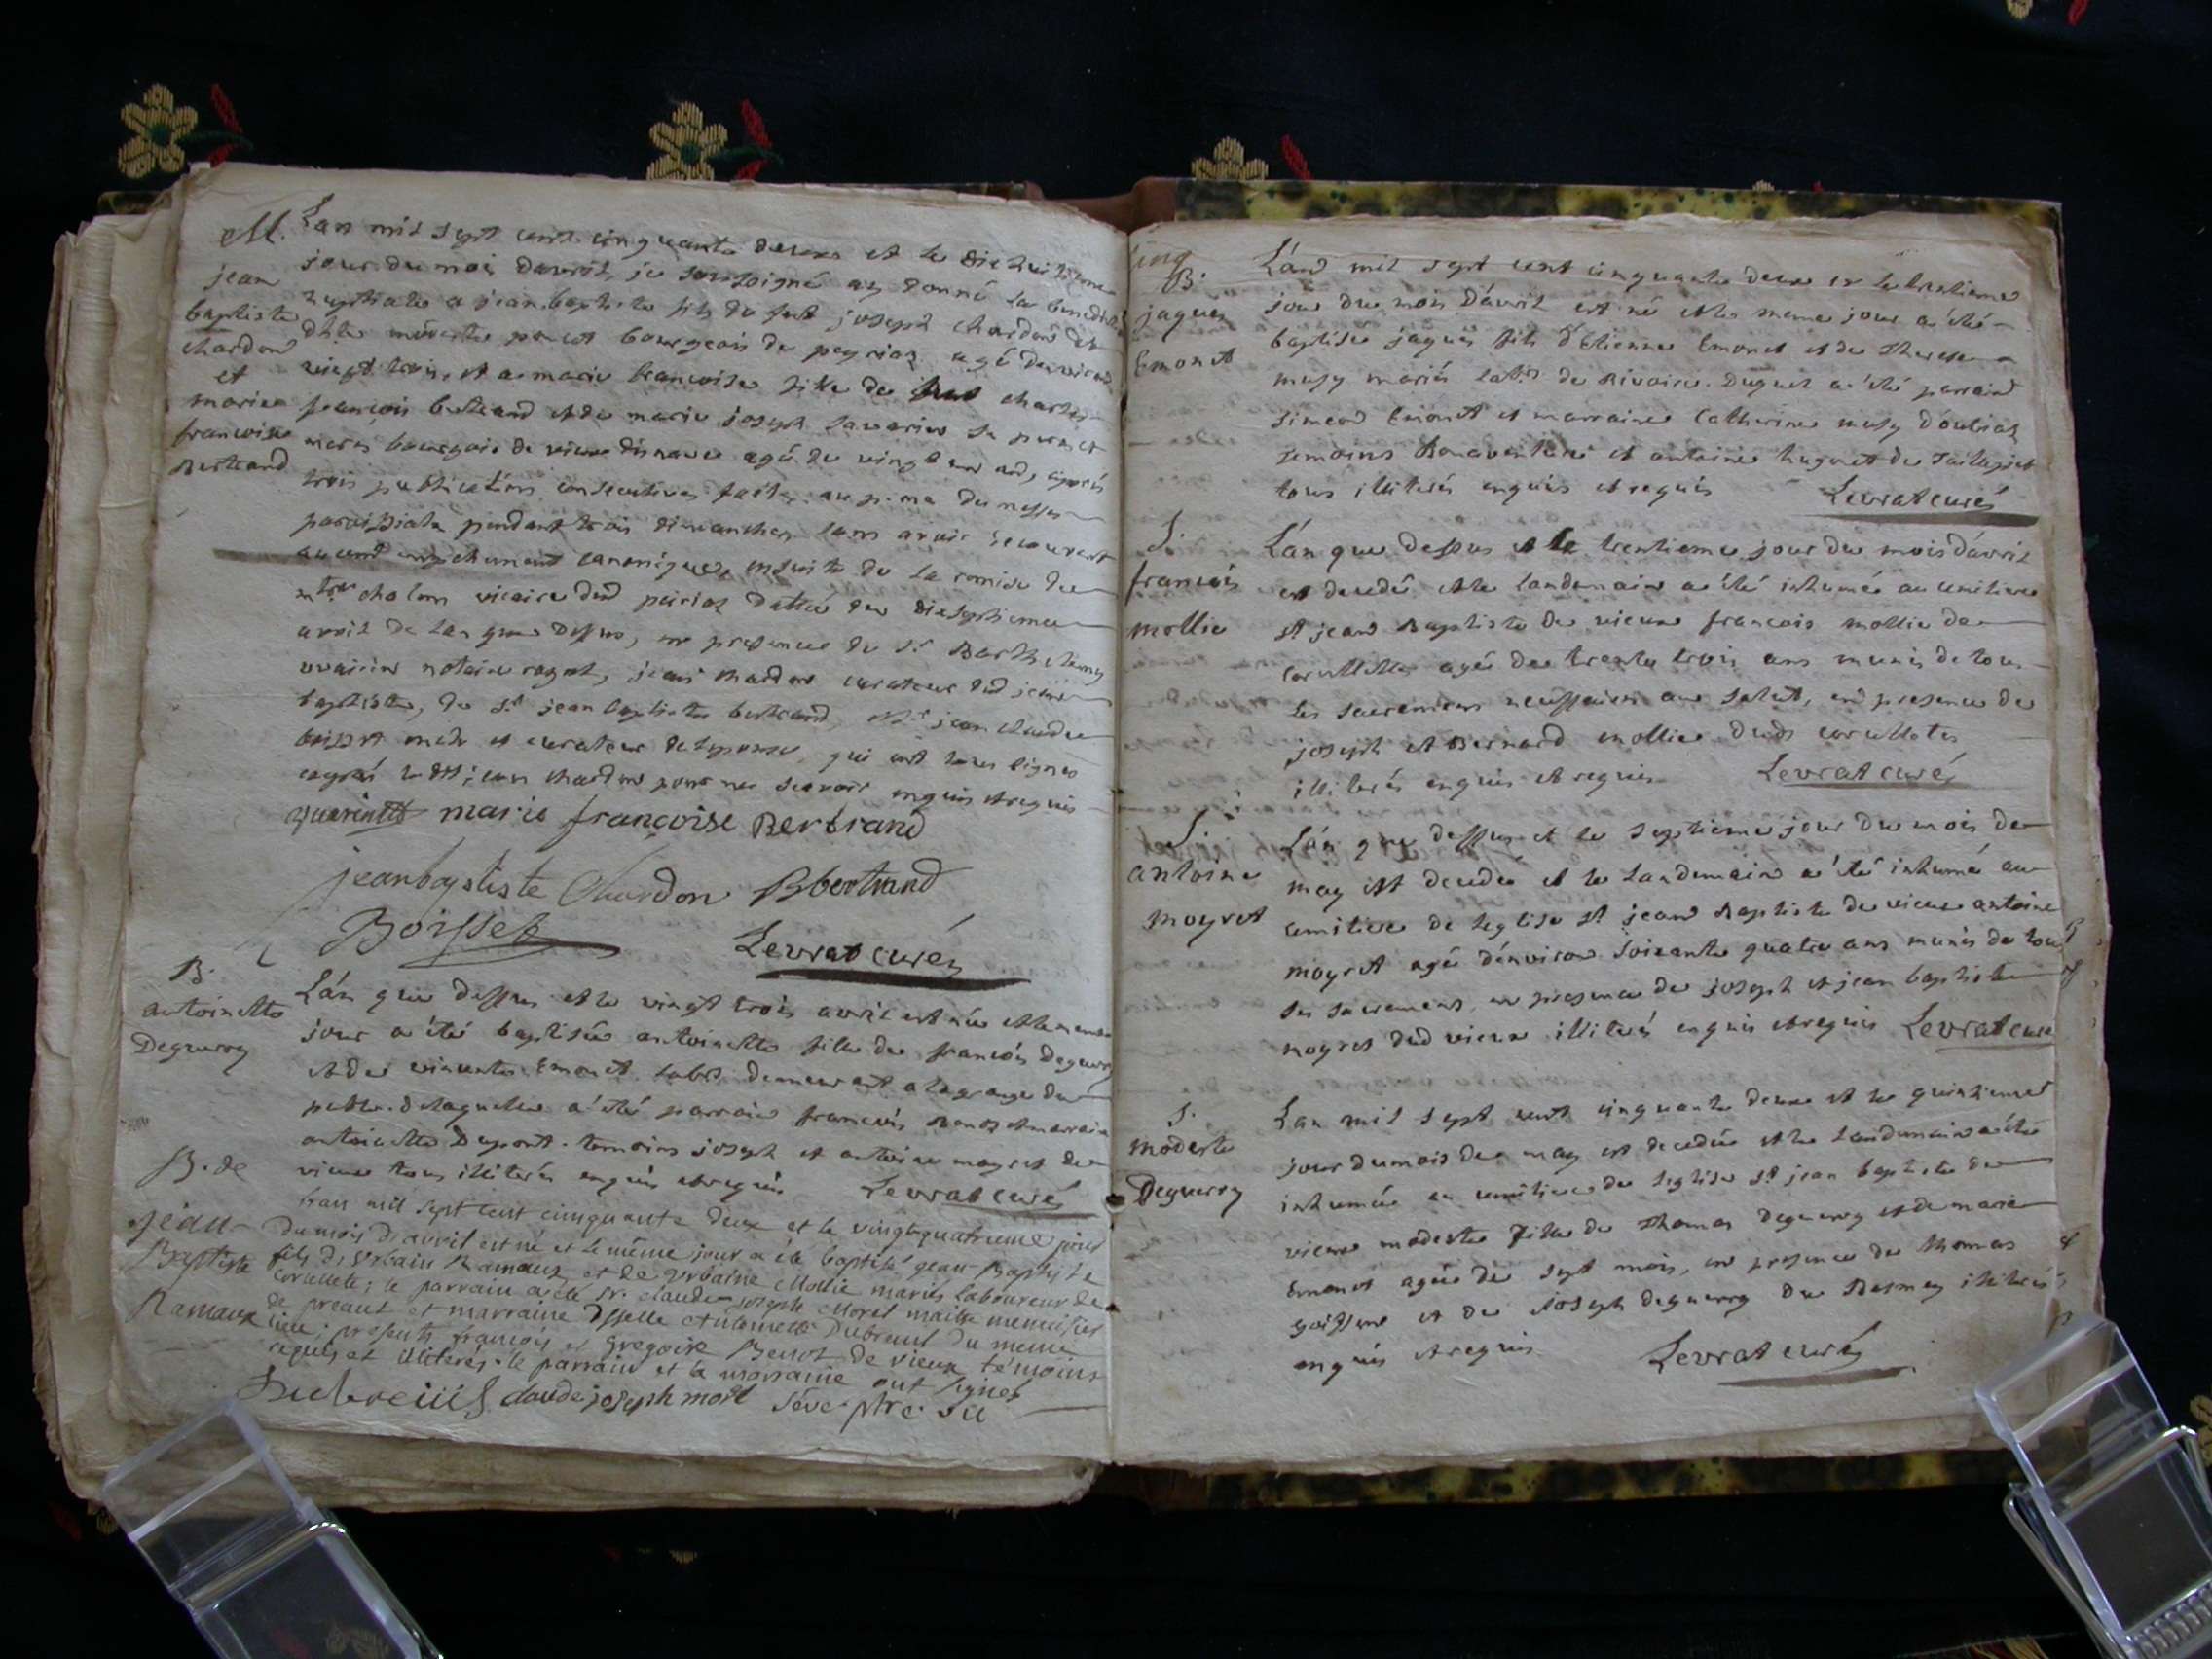 M.
jean
baptiste
chardon
et
marie
francoise
Bertrand
Lan mil sept cent cinquante deux et le dixhuitieme
jour du mois davril, je soussigné ay donné la benediction
nuptiale a jean baptiste fils de feu joseph chardon et
bourgeois de peyriaz agé denviron
vingt trois, et a marie francoise fille de charles
francois bertrand et de marie joseph savarin
mariés bourgois de vieux agée de vingt un ans, après
trois publications consecutives faites au prone du messes
paroissiale pendant trois dimanches sans avoir decouvert
aucun empechement canonique, ensuite de la remise de
chalon vicaire dud peiriaz dattée du dixseptieme
avril de lan que dessus, en presence de Sr Barthelemy
notaire royal, jean chardon curateur dud jean
baptiste, de Sr jean baptiste bertrand, Sr jean claude
boisset et curateur de lepouse, qui ont tous signés
excepté led jean chardon pour ne scavoir enquis et requis
marie françoise Bertrand
jeanbaptiste Chardon Bbertrand
Boisset Levrat curé
B.
antoinette
Deguerry
Lán que dessus et le vingt trois avril est née et le meme
jour a été baptisée antoinette fille de francois Deguerry
et de vincente Emonet labrs demeurant a lagrange du
de laquelle a été parrain francois et marraine
antoinette Dupont. temoins joseph et antoine moyret de
vieux tous illiterés enquis et requis Levrat curé
B. de
jean
Baptiste
Ramaux
l'an mil sept cent cinquante deux et le vingtquatrieme jour
du mois d'avril est né et le même jour a été baptisé jean Baptiste
fils d'Urbain Ramaux et de Urbaine Mollie mariés laboureur de
Corcellete; le parrain a été Sr. claude joseph Morel maitre menuisier
de preaut et marraine Dsselle Antoinette Dubreuil du meme
lieu; presents françois et Gregoire de vieux temoins
requis et illiterés. le parrain et la marraine ont signés
Dubreüil claude joseph morel Séve ptre vic
B.
jaques
Emonet
Lán mil sept cent cinquante deux et le trentieme
jour du mois dávril est né et le meme jour a été
baptisé jaques fils d'Etienne Emonet et de Therese
musy mariés labrs de Rivoire. Duquel a été parrain
simeon Emonet et marraine Catherine musy
temoins Bonaventure et antoine huguet de
tous illiterés enquis et requis Levrat curé
S.
francois
mollie
Lán que dessus et le trentieme jour du mois dávril
est decedé et le landemain a été inhumé au cemitiere
St jean Baptiste de vieux francois mollie de
corcellette agé de trente trois ans munis de tous
les sacremens necessaires au salut, en presence de
joseph et Bernard mollie dud corcellettes
illiterés enquis et requis Levrat curé
S.
antoine
moyret
Lán que dessus et le septieme jour du mois de
may est decedé et le landemain a été inhumé au
cemitiere de leglise St jean Baptiste de vieux antoine
moyret agé dénviron soixante quatre ans munis de tous
les sacremens, en presence de joseph et jean baptiste
moyret dud vieux illiterés enquis et requis Levrat curé
S.
modeste
Deguerry
Lan mil sept cent cinquante deux et le quinzieme
jour dumois de may est decedée et le landemain a été
inhumée au cemitiere de leglise St jean baptiste de
vieux modeste fille de Thomas Deguerry et de marie
Emonet agée de sept mois, en presence de thomas
et de joseph deguerry illiterés
enquis et requis Levrat curé